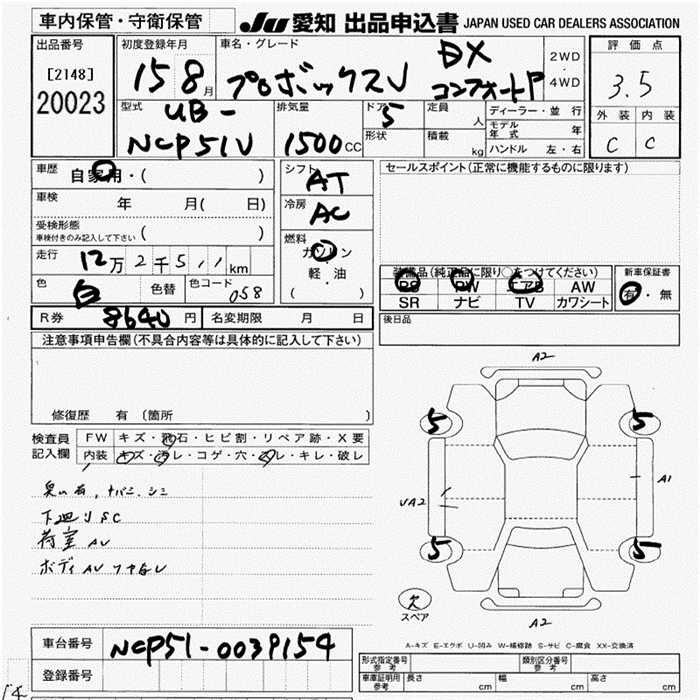 車内保管・守衛保管
JU 愛知 出品申込書 JAPAN USED CAR DEALERS ASSOCIATION
出品番号
[2148]
20023
初度登録年月
15 8月
車名・グレード
プロボックスV
DX
コンフォートP
2WD
・
4WD
評価点
3.5
外装 内装
C C
型式
UB-
NCP51V
排気量
1500CC
ドア 5
形状
定員 人
積載 kg
ディーラー・並行
モデル年式 年
ハンドル 左・右
車歴
自家用・( )
車検 年 月( 日)
受検形態
車検付きのみ記入して下さい ( )
走行 12万2千5,, km
色 白 色替 色コード 058
R券 8640円 名変期限 月 日
シフト AT
冷房 AC
燃料
ガソリン
・
軽・油
( )
セールスポイント(正常に機能するものに限ります)
装備品(純正品に限り○をつけてください)
PS PW エアB AW
SR ナビ TV カワシート
新車保証書
有・無
後日品
注意事項申告欄(不具合内容等は具体的に記入して下さい)
修復歴 有 (箇所 )
検査員
記入欄
FW キズ・飛石・ヒビ割・リペア跡・X要
内装 キズ・汚レ・コゲ・穴・スレ・キレ・破レ
臭い有,
下廻りSC
荷室AU
ボディAU
A2
5 5
UA2 A1
5 5
欠
スペア
A2
A-キズ E-エクボ U-凹み W-補修跡 S-サビ C-腐食 XX-交換済
車台番号 NCP51-0039154
登録番号
型式指定番号
参考
類別区分番号
参考
車庫証明用
参考
長さ cm 幅 cm 高さ cm